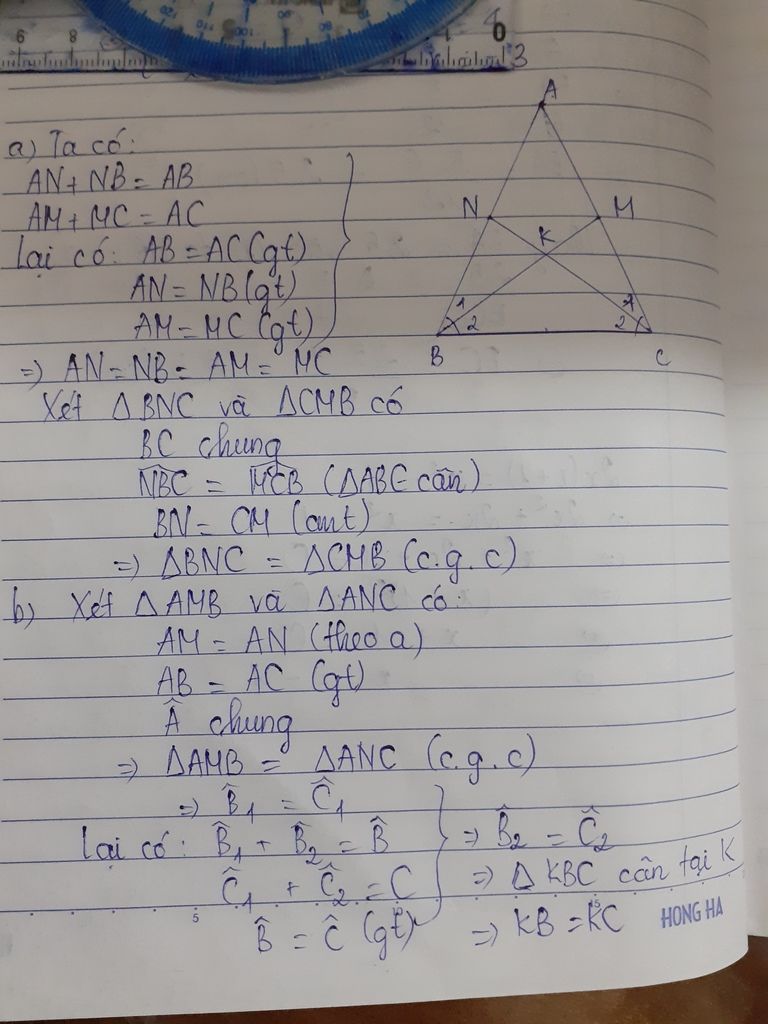 6 8 4 0 3
A
a) Ta có:
AN + NB = AB
N M
AM + MC = AC
K
Lại có: AB = AC (gt)
AN = NB (gt)
1 1
AM = MC (gt)
2 2
B C
=) AN = NB = AM = MC
Xét ΔBNC và ΔCMB có
BC chung
NBC = MCB (ΔABC cân)
BN = CM (cmt)
=) ΔBNC = ΔCMB (c.g.c)
b) Xét ΔAMB và ΔANC có:
AM = AN (theo a)
AB = AC (gt)
Â chung
=) ΔAMB = ΔANC (c.g.c)
=) B̂1 = Ĉ1
Lại có: B̂1 + B̂2 = B̂ =) B̂2 = Ĉ2
Ĉ1 + Ĉ2 = C =) Δ KBC cân tại K
B̂ = Ĉ (gt) =) KB = KC
5 10 15 HONG HA